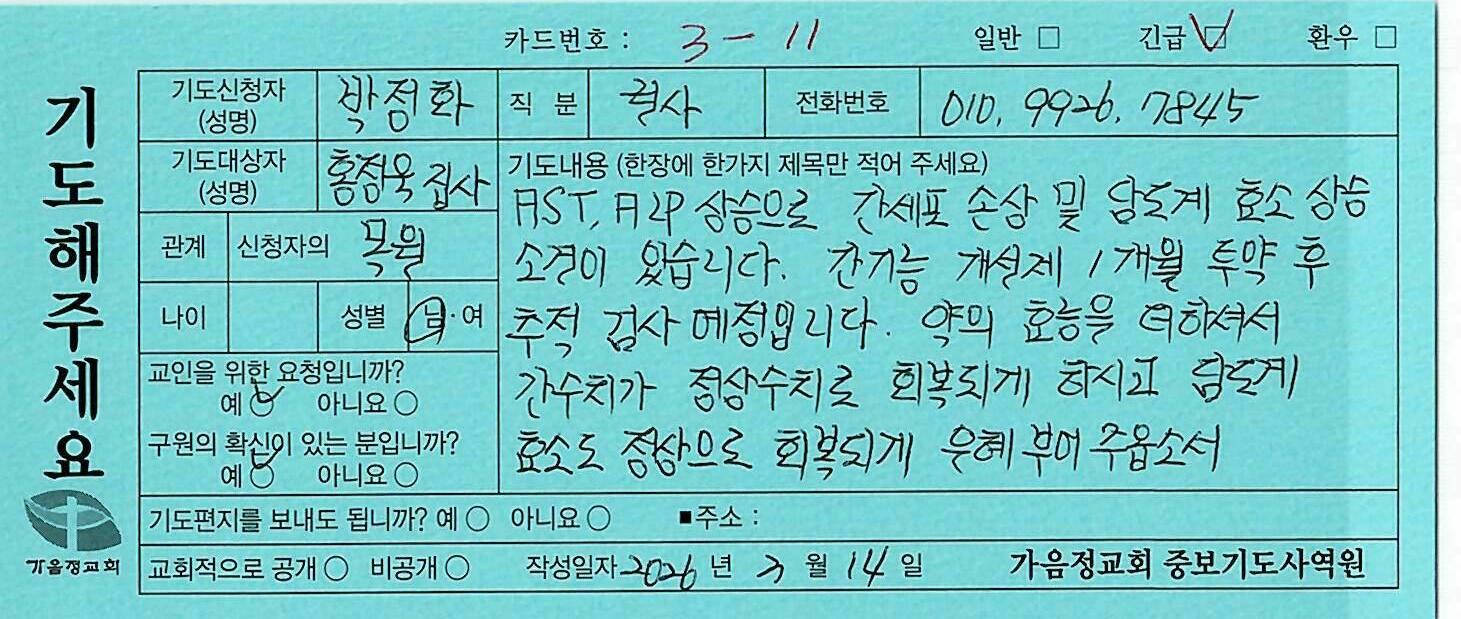 카드번호 : 3 - 11 일반 □ 긴급 □ 환우 □
기도해주세요
기도신청자 (성명) 박정화 직 분 권사 전화번호 010. 9926. 7845
기도대상자 (성명) 홍점욱 집사
관계 신청자의 목원
나이 성별 남·여
교인을 위한 요청입니까?
예 ○ 아니요 ○
구원의 확신이 있는 분입니까?
예 ○ 아니요 ○
기도내용 (한장에 한가지 제목만 적어 주세요)
AST, ALP 상승으로 간세포 손상 및 담도계 효소 상승
소견이 있습니다. 간기능 개선제 1개월 투약 후
추적 검사 예정입니다. 약의 효능을 더하셔서
간수치가 정상수치로 회복되게 하시고 담도계
효소도 정상으로 회복되게 은혜 부어 주옵소서
기도편지를 보내도 됩니까? 예 ○ 아니요 ○ ■주소 :
교회적으로 공개 ○ 비공개 ○ 작성일자 2026 년 3 월 14 일 가음정교회 중보기도사역원
가음정교회